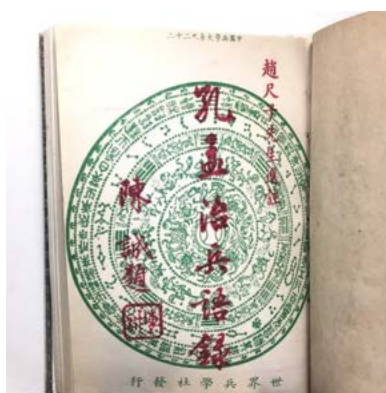 中國兵學大系之二十二
趙尺子先生註
孔孟治兵語錄
陳誠題
世界兵學社發行